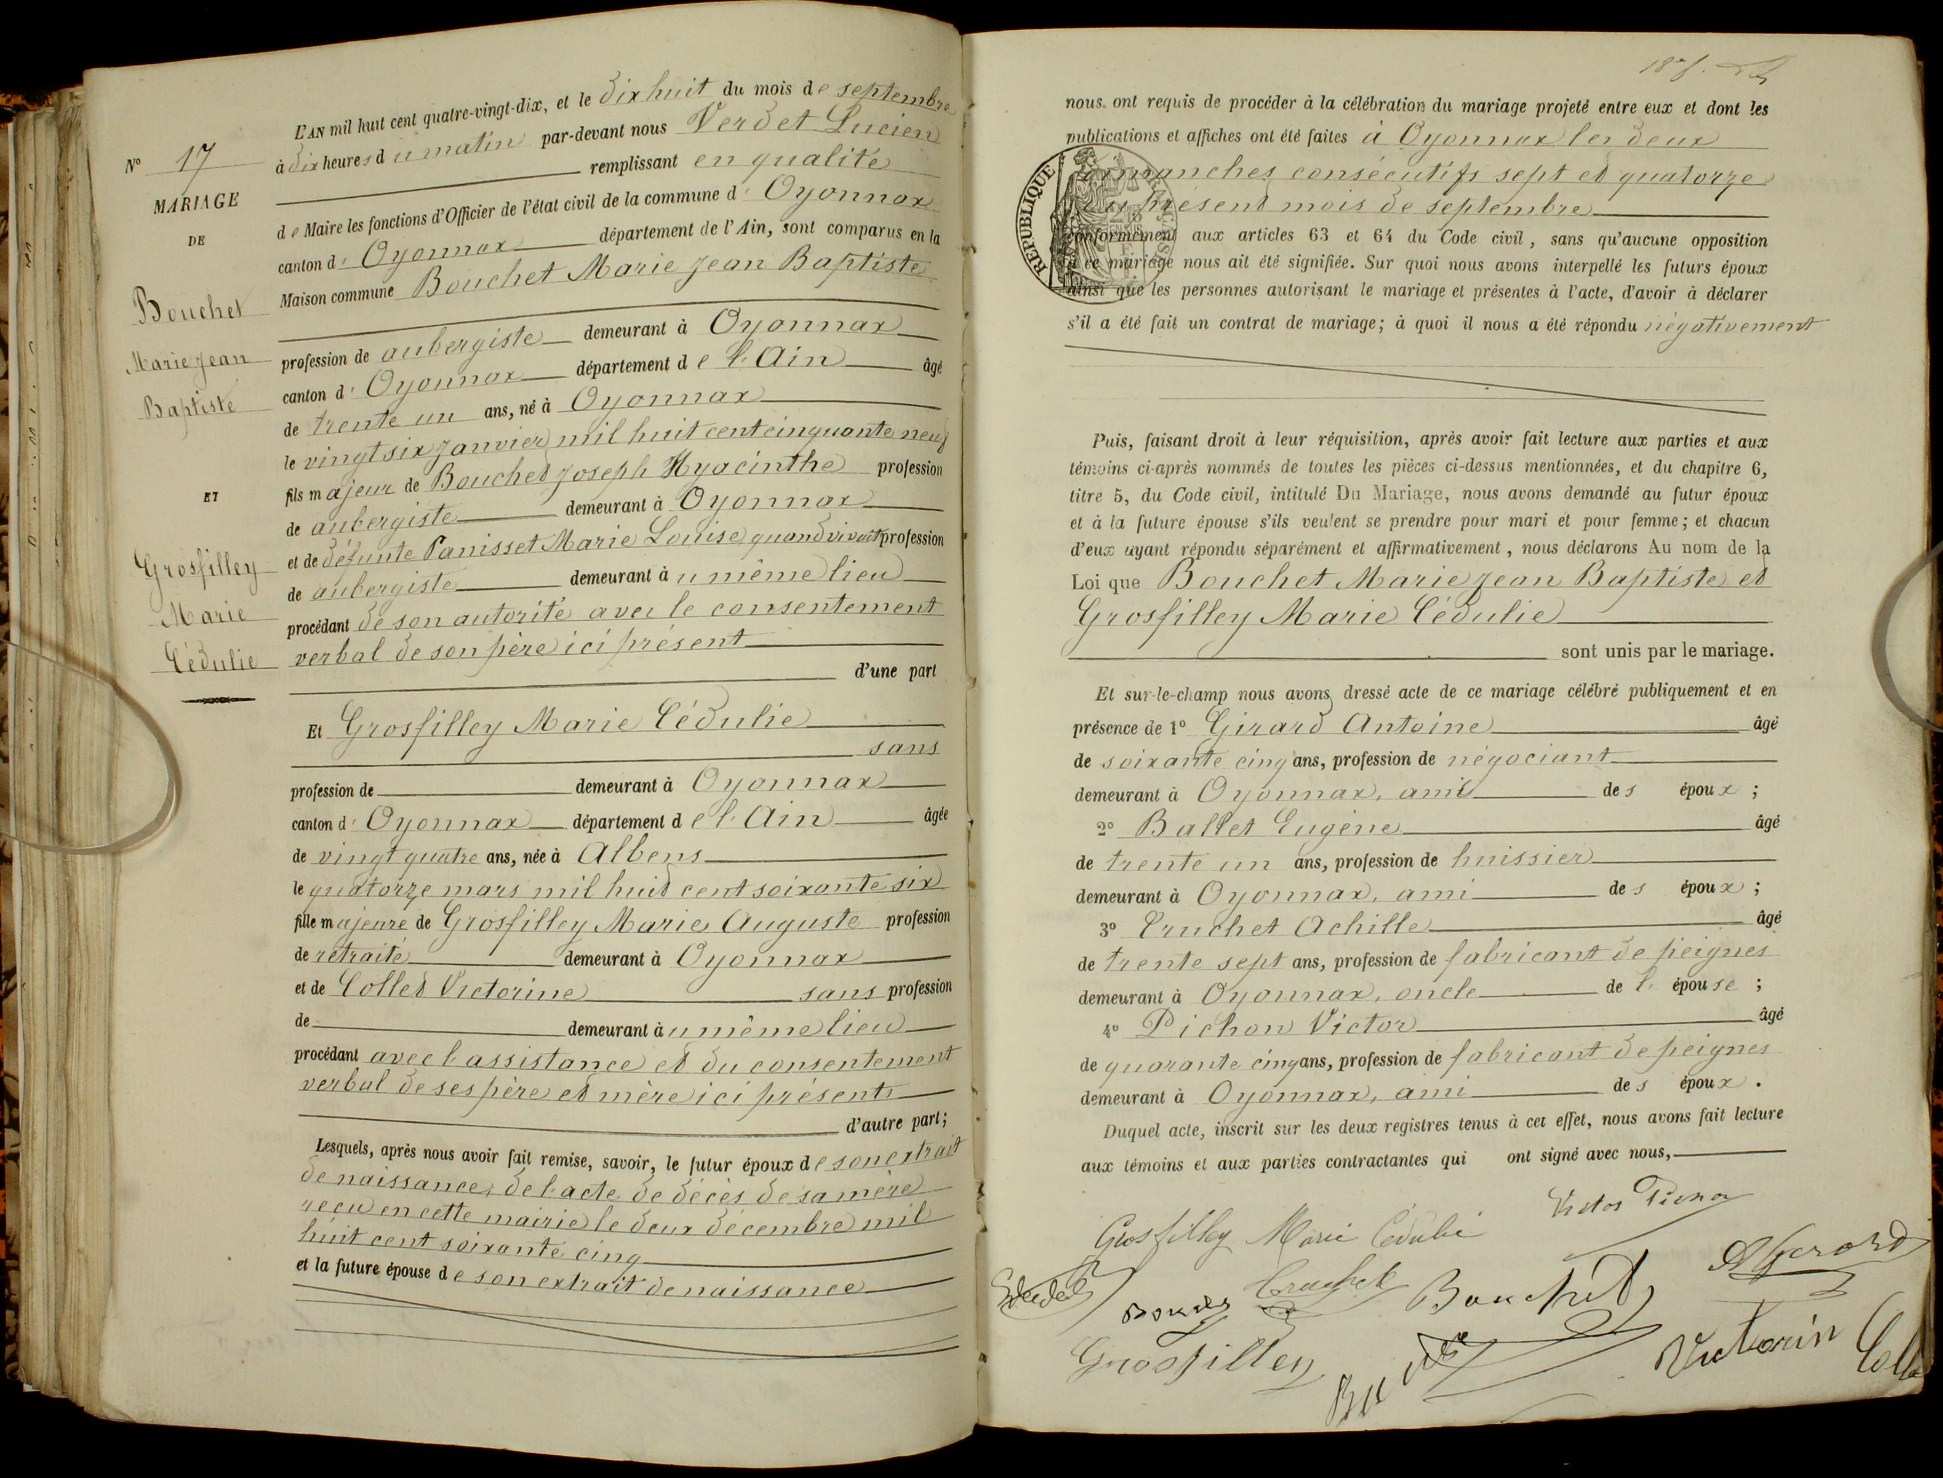 L'AN mil huit cent quatre-vingt-dix, et le dix huit du mois de septembre
à dix heures du matin par-devant nous Verdet Lucien
remplissant en qualité
de Maire les fonctions d'Officier de l'état civil de la commune d' Oyonnax
canton d' Oyonnax département de l'Ain, sont comparus en la
Maison commune Bouchet Marie Jean Baptiste
profession de aubergiste demeurant à Oyonnax
canton d' Oyonnax département de l'Ain âgé
de trente un ans, né à Oyonnax
le vingt six janvier mil huit cent cinquante neuf
fils majeur de Bouchet Joseph Hyacinthe profession
de aubergiste demeurant à Oyonnax
et de défunte Panisset Marie Louise quand vivait profession
de aubergiste demeurant àu même lieu
procédant de son autorité avec le consentement
verbal de son père ici présent
d'une part
Et Grosfilley Marie Cédulie
sans
profession de demeurant à Oyonnax
canton d' Oyonnax département de l'Ain âgée
de vingt quatre ans, née à Albens
le quatorze mars mil huit cent soixante six
fille majeure de Grosfilley Marie Auguste profession
de retraité demeurant à Oyonnax
et de Collet Victorine sans profession
de demeurant àu même lieu
procédant avec l'assistance et du consentement
verbal de ses père et mère ici présents
d'autre part;
Lesquels, après nous avoir fait remise, savoir, le futur époux de son extrait
de naissance, de l'acte de décès de sa mère
reçu en cette mairie le deux décembre mil
huit cent soixante cinq
et la future épouse de son extrait de naissance
N° 17
MARIAGE
DE
Bouchet
Marie Jean
Baptiste
ET
Grosfilley
Marie
Cédulie
nous ont requis de procéder à la célébration du mariage projeté entre eux et dont les
publications et affiches ont été faites à Oyonnax les deux
dimanches consécutifs sept et quatorze
du présent mois de septembre
conformément aux articles 63 et 64 du Code civil, sans qu'aucune opposition
à ce mariage nous ait été signifiée. Sur quoi nous avons interpellé les futurs époux
ainsi que les personnes autorisant le mariage et présentes à l'acte, d'avoir à déclarer
s'il a été fait un contrat de mariage; à quoi il nous a été répondu négativement
RÉPUBLIQUE FRANÇAISE
Puis, faisant droit à leur réquisition, après avoir fait lecture aux parties et aux
témoins ci-après nommés de toutes les pièces ci-dessus mentionnées, et du chapitre 6,
titre 5, du Code civil, intitulé Du Mariage, nous avons demandé au futur époux
et à la future épouse s'ils veulent se prendre pour mari et pour femme; et chacun
d'eux ayant répondu séparément et affirmativement, nous déclarons Au nom de la
Loi que Bouchet Marie Jean Baptiste et
Grosfilley Marie Cédulie
sont unis par le mariage.
Et sur-le-champ nous avons dressé acte de ce mariage célébré publiquement et en
présence de 1° Girard Antoine âgé
de soixante cinq ans, profession de négociant
demeurant à Oyonnax, ami des époux;
2° Ballet Eugène âgé
de trente un ans, profession de huissier
demeurant à Oyonnax, ami des époux;
3° Truchet Achille âgé
de trente sept ans, profession de fabricant de peignes
demeurant à Oyonnax, oncle de l'épouse;
4° Pichon Victor âgé
de quarante cinq ans, profession de fabricant de peignes
demeurant à Oyonnax, ami des époux.
Duquel acte, inscrit sur les deux registres tenus à cet effet, nous avons fait lecture
aux témoins et aux parties contractantes qui ont signé avec nous,
Grosfilley Marie Cédulie
Truchet
Bouchet
Grosfilley
Victorin